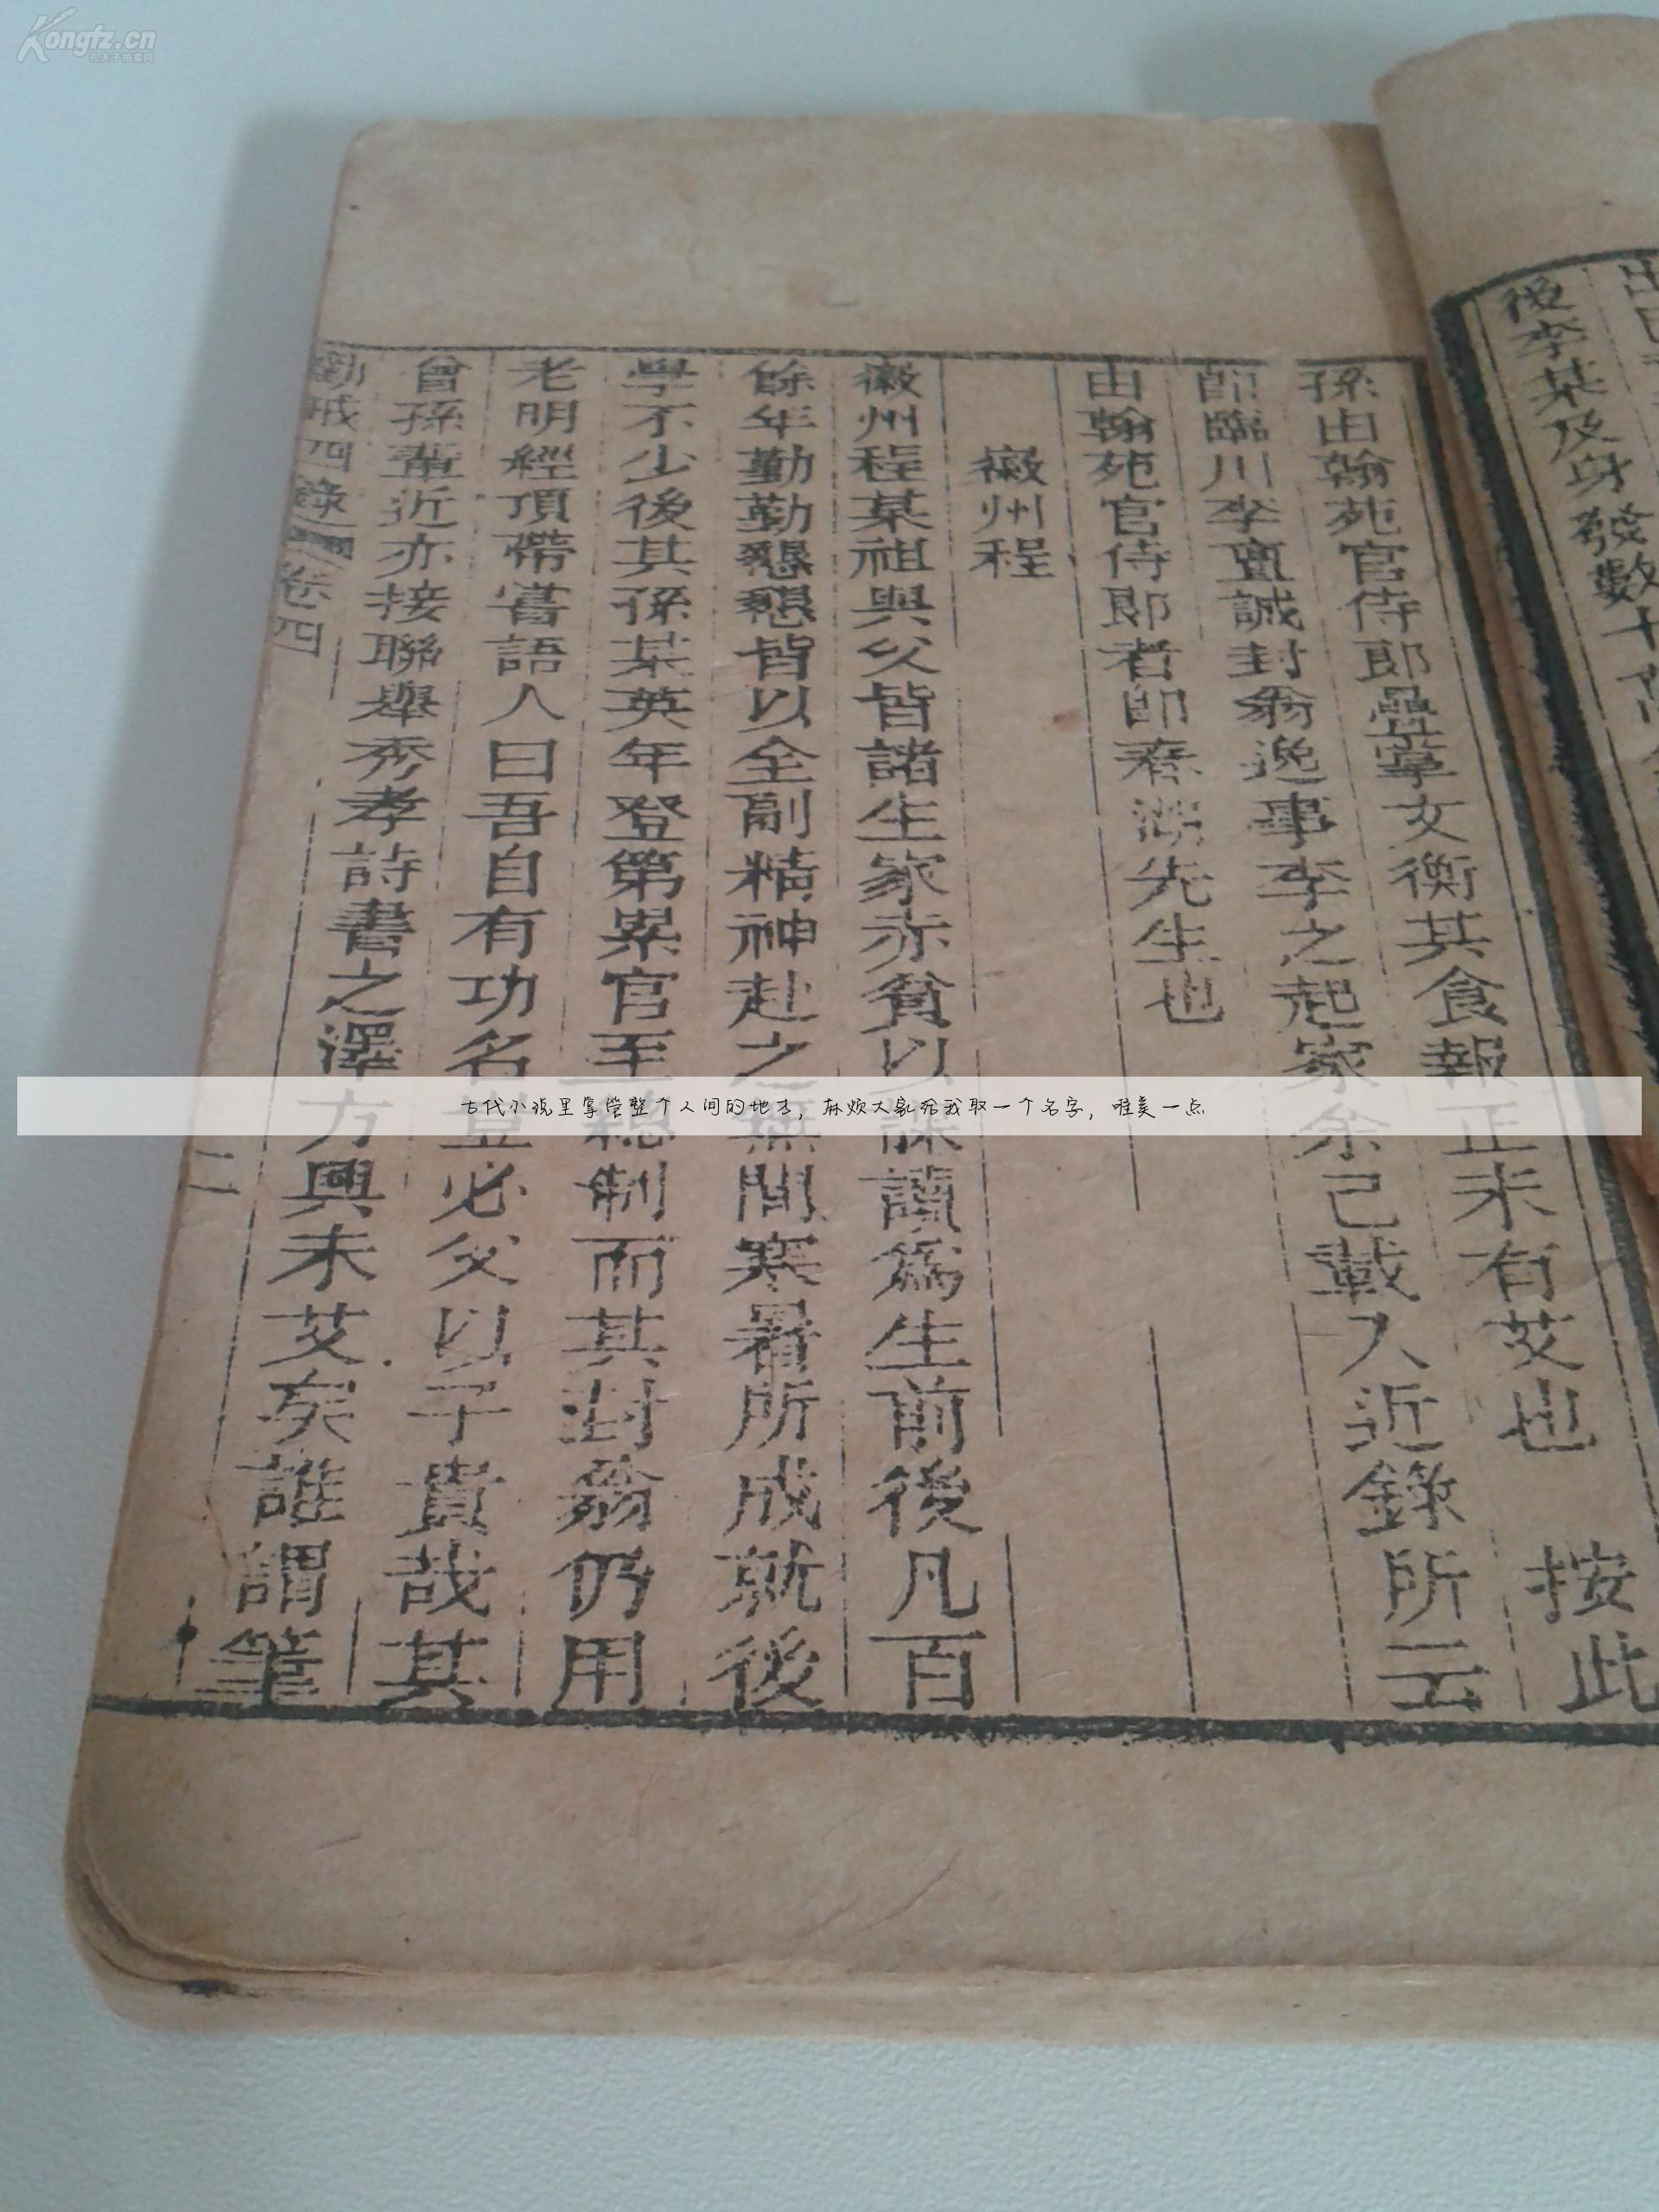 Kongfz.cn
孔夫子拍卖网
後李某及身發數十
孫由翰苑官侍郎疊掌文衡其食報正未有艾也 按此
即臨川李直誠封翁逸事李之起家余已載入近錄所云
由翰苑官侍郎者即春湖先生也
徽州程
徽州程某祖與父皆諸生家赤貧以課讀為生前後凡百
餘年勤勤懇懇皆以全副精神赴之無間寒暑所成就後
學不少後其孫某英年登第累官至總制而其封翁仍用
老明經頂帶嘗語人曰吾自有功名豈必父以子貴哉其
曾孫輩近亦接聯舉秀孝詩書之澤方興未艾矣誰謂筆
勸戒四錄 卷四 二
古代小说里掌管整个人间的地方，麻烦大家给我取一个名字，唯美一点